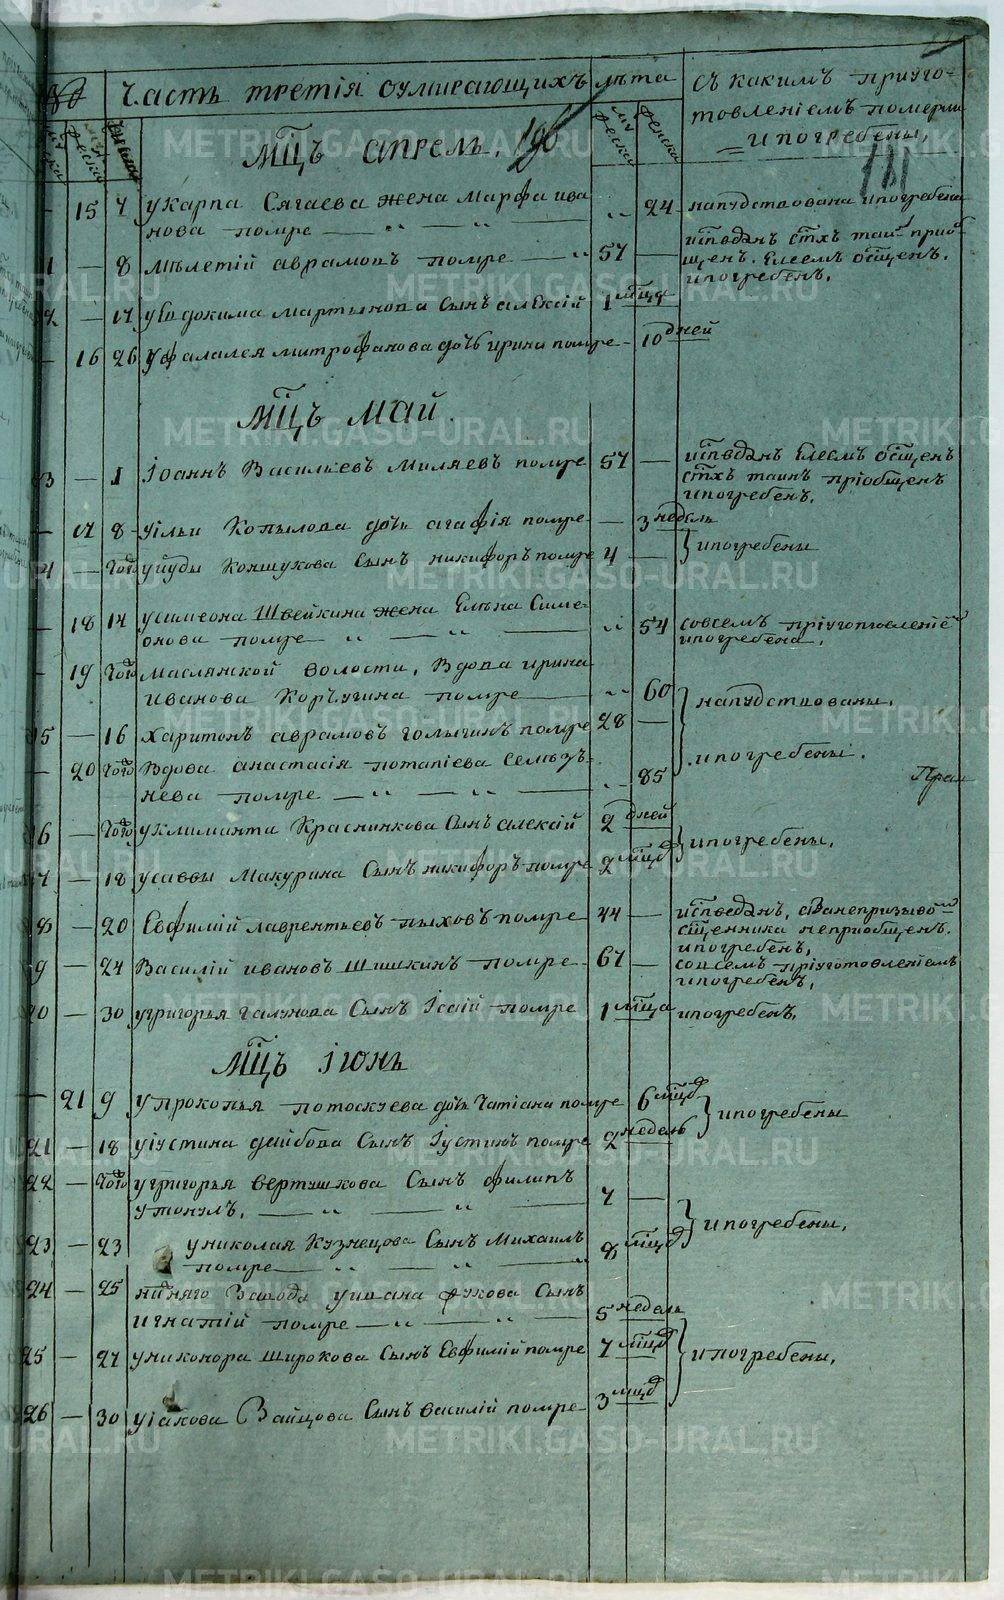 Часть третія оумирающихъ лѣта съ какимъ пріуго-
товленіемъ померли
и погребены,
Мцъ апрель. 196
181
15 7 у карпа Сягаева жена Марфа ива 24 напудствована и погребена
нова помре
1 — 8 мѣлетій аврамовъ помре 57 — исповѣданъ стхъ таин приоб-
щенъ. Елеемъ освщенъ.
и погребенъ.
2 — 17 у Евдокима мартынова Сынъ алексій 1 мцъ
16 26 у фалалея митрофанова дочь ирина помре 10 дней
Мцъ Май.
3 — 1 Іоаннъ Васильевъ Миляевъ помре 57 — исповѣданъ Елеемъ освщенъ
стхъ таинъ пріобщенъ
и погребенъ.
— 17 8 у Ильи Копылова дочь агафія помре — 3 недель
4 — того у Иуды Коншукова Сынъ никифоръ помре 4 — и погребены
— 18 14 у симеона Швейкина жена Елена Симе- 54 совсемъ пріуготовленіем
онова помре и погребена.
— 19 того маслянской волости, вдова ирина
иванова Коръугина помре 60 напудствованы,
15 — 16 харитонъ аврамовъ голыгинъ помре 28 —
— 20 того вдова анастасія потапіева семъзъ- и погребены.
нева помре 85
Прап
16 — того у климанта Красникова Сынъ алексій 2 дней
17 — 18 у саввы Макурина Сынъ никифоръ помре 2 мцъ и погребены,
18 — 20 Евфимій лаврентьевъ пыховъ помре 44 — исповеданъ, за непризывом
сщенника неприобщенъ.
и погребенъ,
19 — 24 Василій ивановъ Шишкинъ помре 67 — со всемъ пріуготовленіемъ
и погребенъ,
20 — 30 у григорья галунова Сынъ Ісаій помре 1 мцъ и погребенъ,
Мцъ Іюнь
— 21 9 у прокопья потоскуева дочь Татіана помре 6 мцъ и погребены
21 — 18 у іустина дайбова Сынъ Іустинъ помре 2 недель
22 — того у григорья вертушкова Сынъ филипъ
утонулъ. 7 — и погребены,
23 — 23 у николая Кузнецова Сынъ Михаилъ 8 мцъ
помре
24 — 25 нижняго Завода у ивана фукова Сынъ
игнатій помре 5 недель
25 — 27 у никонора широкова Сынъ Евфимій помре 7 мцъ и погребены,
26 — 30 у іакова Зайцова Сынъ василій помре 3 мцъ
METRIKI.GASO-URAL.RU